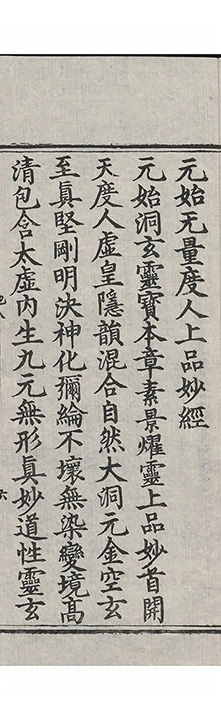 元始无量度人上品妙經
元始洞玄靈寶本章素景耀靈上品妙首開
天度人虛皇隱韻混合自然大洞元金空玄
至眞堅剛明決神化彌綸不壞無染變境高
清包含太虛內生九元無形眞妙道性靈玄